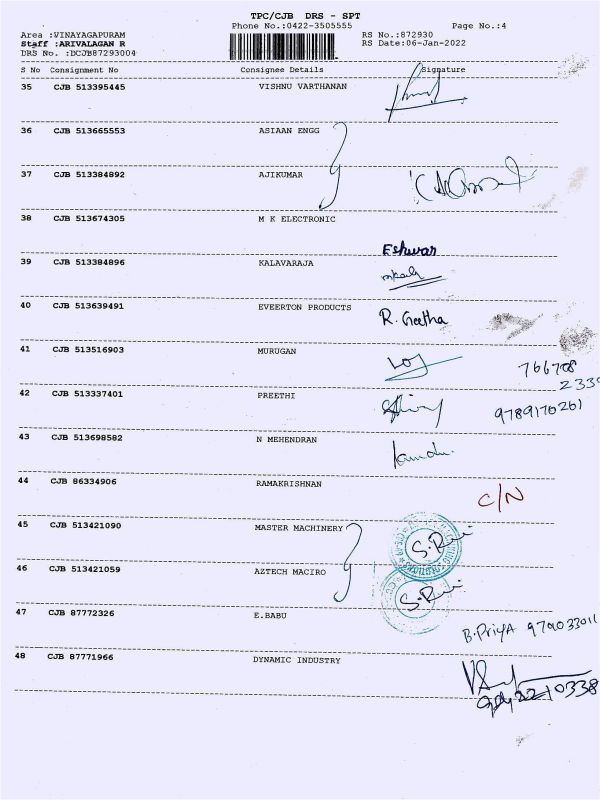 TPC/CJB DRS - SPT
Phone No.:0422-3505555 Page No.:4
Area :VINAYAGAPURAM RS No.:872930
Staff :ARIVALAGAN R RS Date:06-Jan-2022
DRS No. :DCJB87293004
S No Consignment No Consignee Details Signature
35 CJB 513395445 VISHNU VARTHANAN
36 CJB 513665553 ASIAAN ENGG
37 CJB 513384892 AJIKUMAR
38 CJB 513674305 M K ELECTRONIC
Eshwar
39 CJB 513384896 KALAVARAJA
40 CJB 513639491 EVEERTON PRODUCTS R. Geetha
41 CJB 513516903 MURUGAN
766708
2339
42 CJB 513337401 PREETHI 9789170261
43 CJB 513698582 N MEHENDRAN
44 CJB 86334906 RAMAKRISHNAN C/N
45 CJB 513421090 MASTER MACHINERY
46 CJB 513421059 AZTECH MACIRO
47 CJB 87772326 E.BABU B.PriyA 979033011
48 CJB 87771966 DYNAMIC INDUSTRY